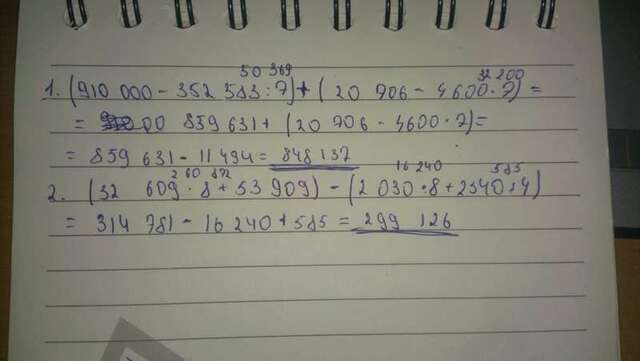 50 369 32 200
1. (910 000 - 352 583 : 7) + (20 706 - 4600 · 7) =
= 00 859 631 + (20 706 - 4600 · 7) =
= 859 631 - 11 494 = 848 137
260 872 16 240 585
2. (32 609 · 8 + 53 909) - (2 030 · 8 + 2340 : 4)
= 314 781 - 16 240 + 585 = 299 126